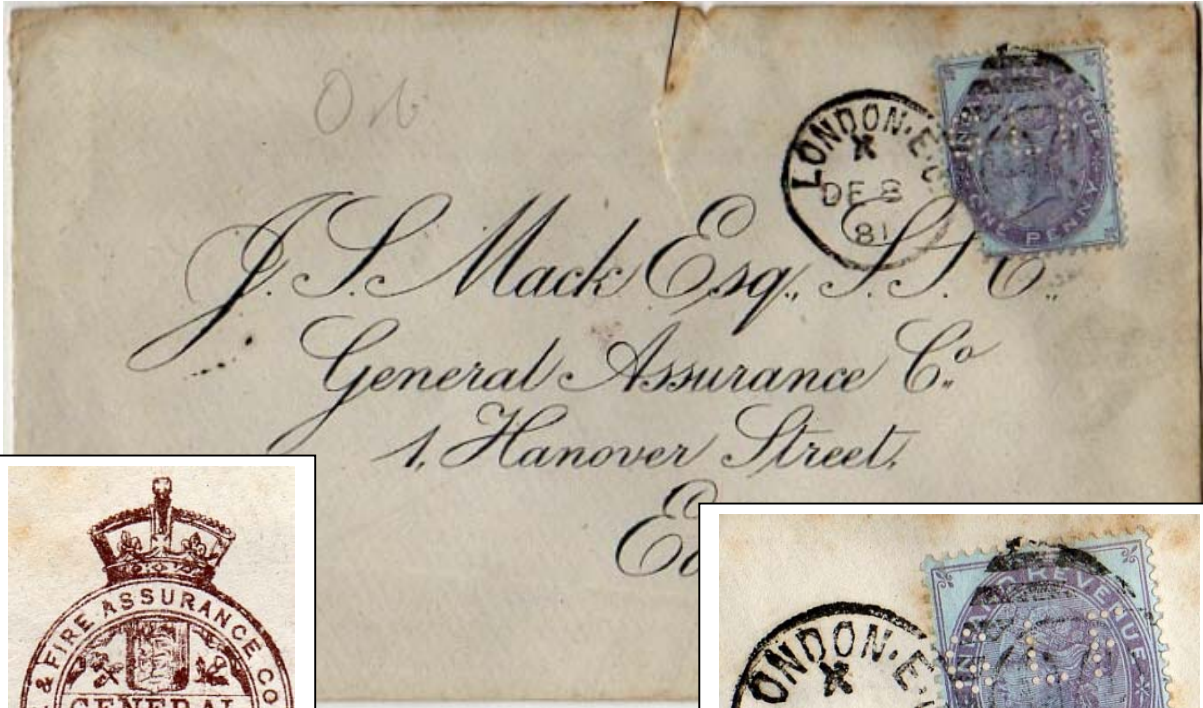 LONDON·E·C
X
DE 8
81
INLAND REVENUE
ONE PENNY
J. S. Mack Esq., S.S.C.,
General Assurance Co.,
1, Hanover Street,
& FIRE ASSURANCE CO
GENERAL
ONDON·E·
X
INLAND REVENUE